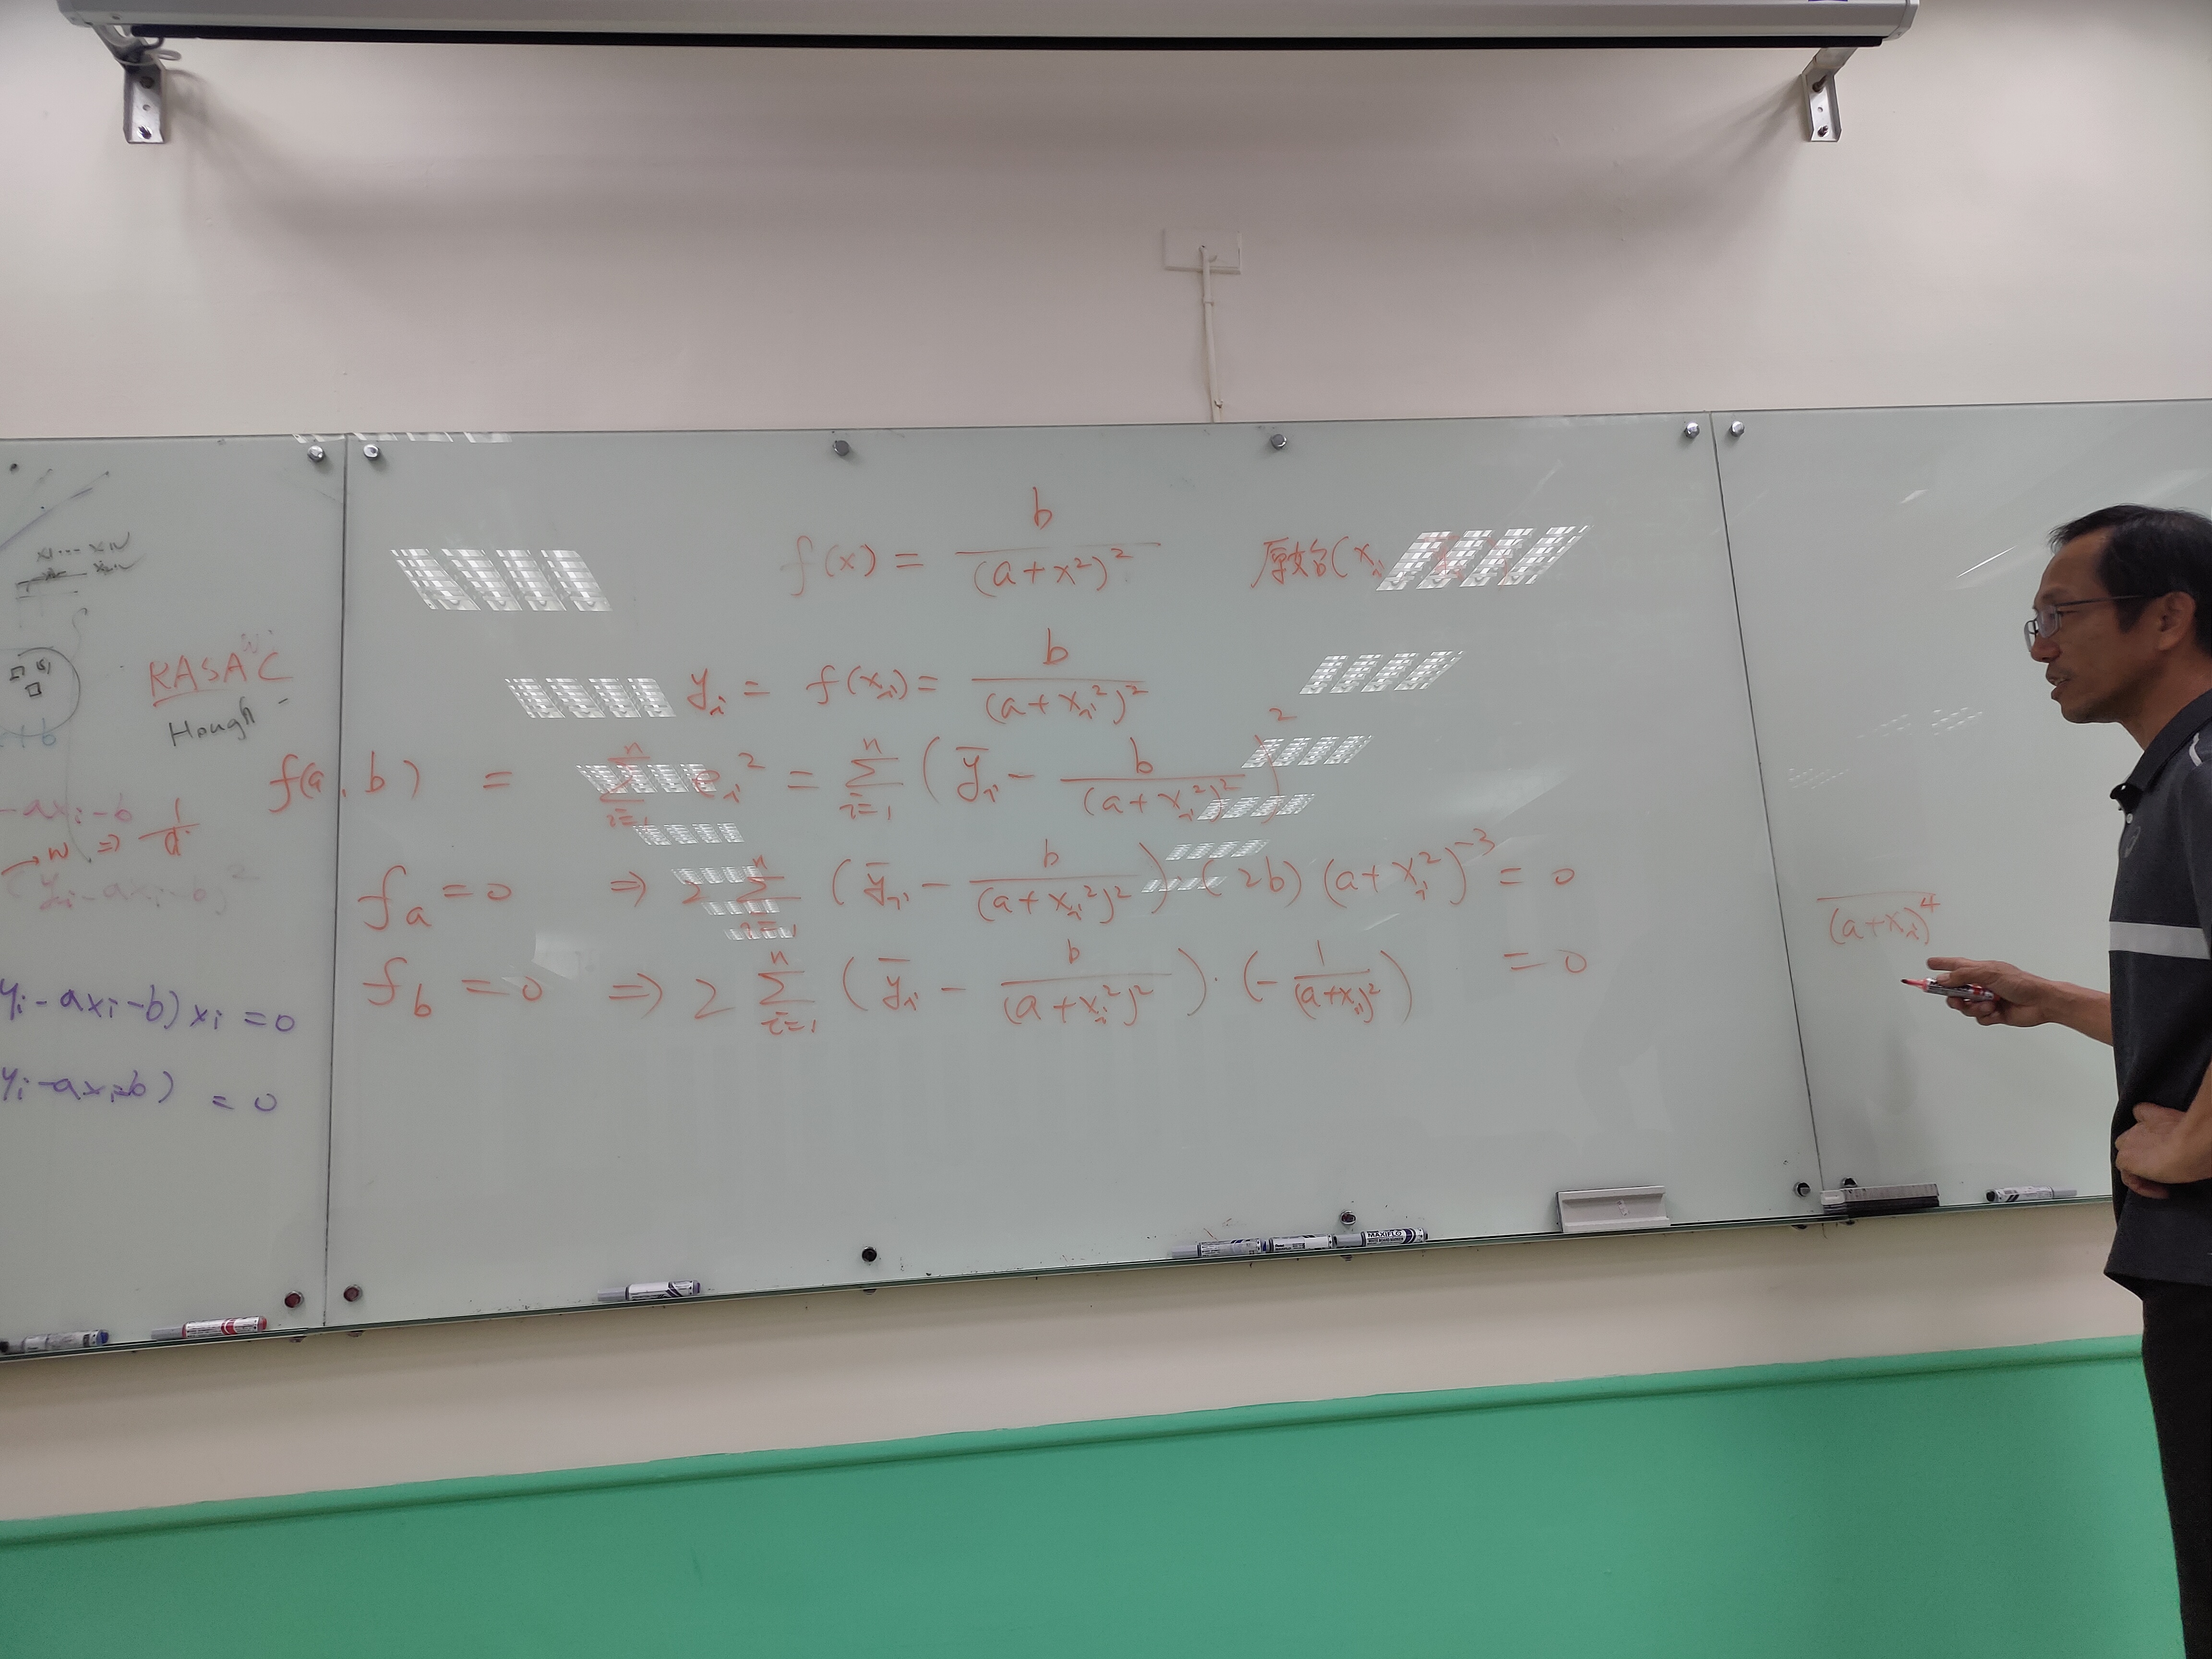 x1 ... xN
RASAC
Hough -
-axi-b
→ w ⇒ 1/d
(yi-axi-b)²
yi-axi-b)xi=0
yi-axi-b) = 0
f(x) = b/(a+x²)² 原始(xi
yi = f(xi) = b/(a+xi²)²
f(a,b) = Σ_{i=1}^{n} ei² = Σ_{i=1}^{n} (ȳi - b/(a+xi²)²)²
fa=0 ⇒ 2 Σ_{i=1}^{n} (ȳi - b/(a+xi²)²)·(2b)(a+xi²)^-3 = 0
fb=0 ⇒ 2 Σ_{i=1}^{n} (ȳi - b/(a+xi²)²)·(-1/(a+xi)²) = 0
(a+xi)^4
MAXIFLO